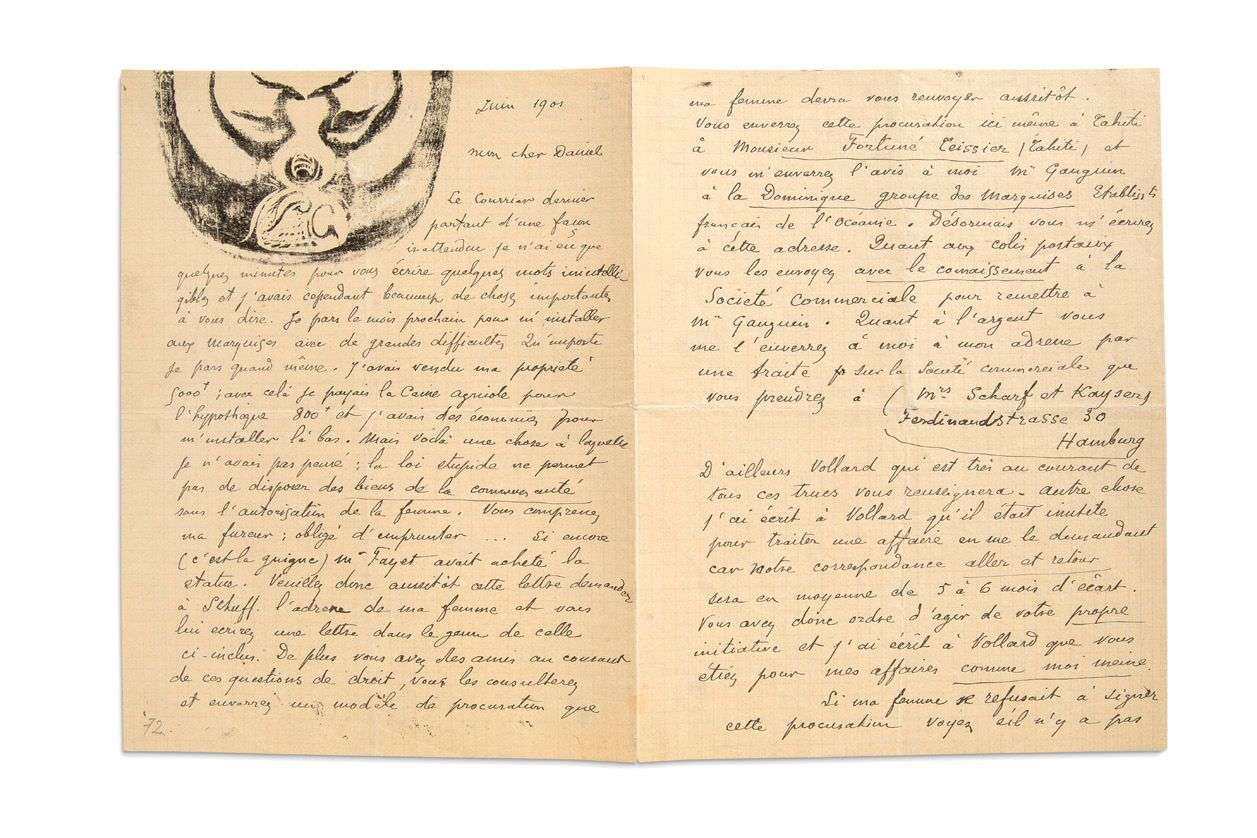 Juin 1901
Mon cher Daniel
Le Courrier dernier
partant d'une façon
inattendue je n'ai eu que
quelques minutes pour vous écrire quelques mots inintelli-
gibles et j'avais cependant beaucoup de choses importantes
à vous dire. Je pars le mois prochain pour m'installer
aux Marquises avec de grandes difficultés Qu'importe
je pars quand même. J'avais vendu ma propriété
5000f ; avec celà je payais la Caisse agricole pour
l'hypothèque 800f et j'avais des économies pour
m'installer là bas. Mais voilà une chose à laquelle
je n'avais pas pensé ; la loi stupide ne permet
pas de disposer des biens de la communauté
sans l'autorisation de la femme. Vous comprenez
ma fureur ; obligé d'emprunter ... Si encore
(c'est la guigne) Mr Fayet avait acheté la
statue. Veuillez donc aussitôt cette lettre demander
à Schuff. l'adresse de ma femme et vous
lui ecrirez une lettre dans le genre de celle
ci-inclus. De plus vous avez des amis au courant
de ces questions de droit, vous les consulterez
et enverrez un modèle de procuration que
72.
ma femme devra vous renvoyer aussitôt.
Vous enverrez cette procuration ici même à Tahiti
à Monsieur Fortuné Teissier (Tahiti) et
vous m'enverrez l'avis à moi Mr Gauguin
à la Dominique groupe des Marquises Etablissts
français de l'Océanie. Désormais vous m'écrirez
à cette adresse. Quant aux colis postaux
vous les envoyez avec le connaissement à la
Société Commerciale pour remettre à
Mr Gauguin. Quant à l'argent vous
me l'enverrez à moi à mon adresse par
une traite sur la Société commerciale que
vous prendrez à (Mrs Scharf et Kaysers
Ferdinandstrasse 30
Hamburg
D'ailleurs Vollard qui est très au courant de
tous ces trucs vous renseignera - autre chose
j'ai écrit à Vollard qu'il était inutile
pour traiter une affaire en me le demandant
car notre correspondance aller et retour
sera en moyenne de 5 à 6 mois d'écart.
Vous avez donc ordre d'agir de votre propre
initiative et j'ai écrit à Vollard que vous
étiez pour mes affaires comme moi même.
Si ma femme refusait à signer
cette procuration voyez s'il n'y a pas